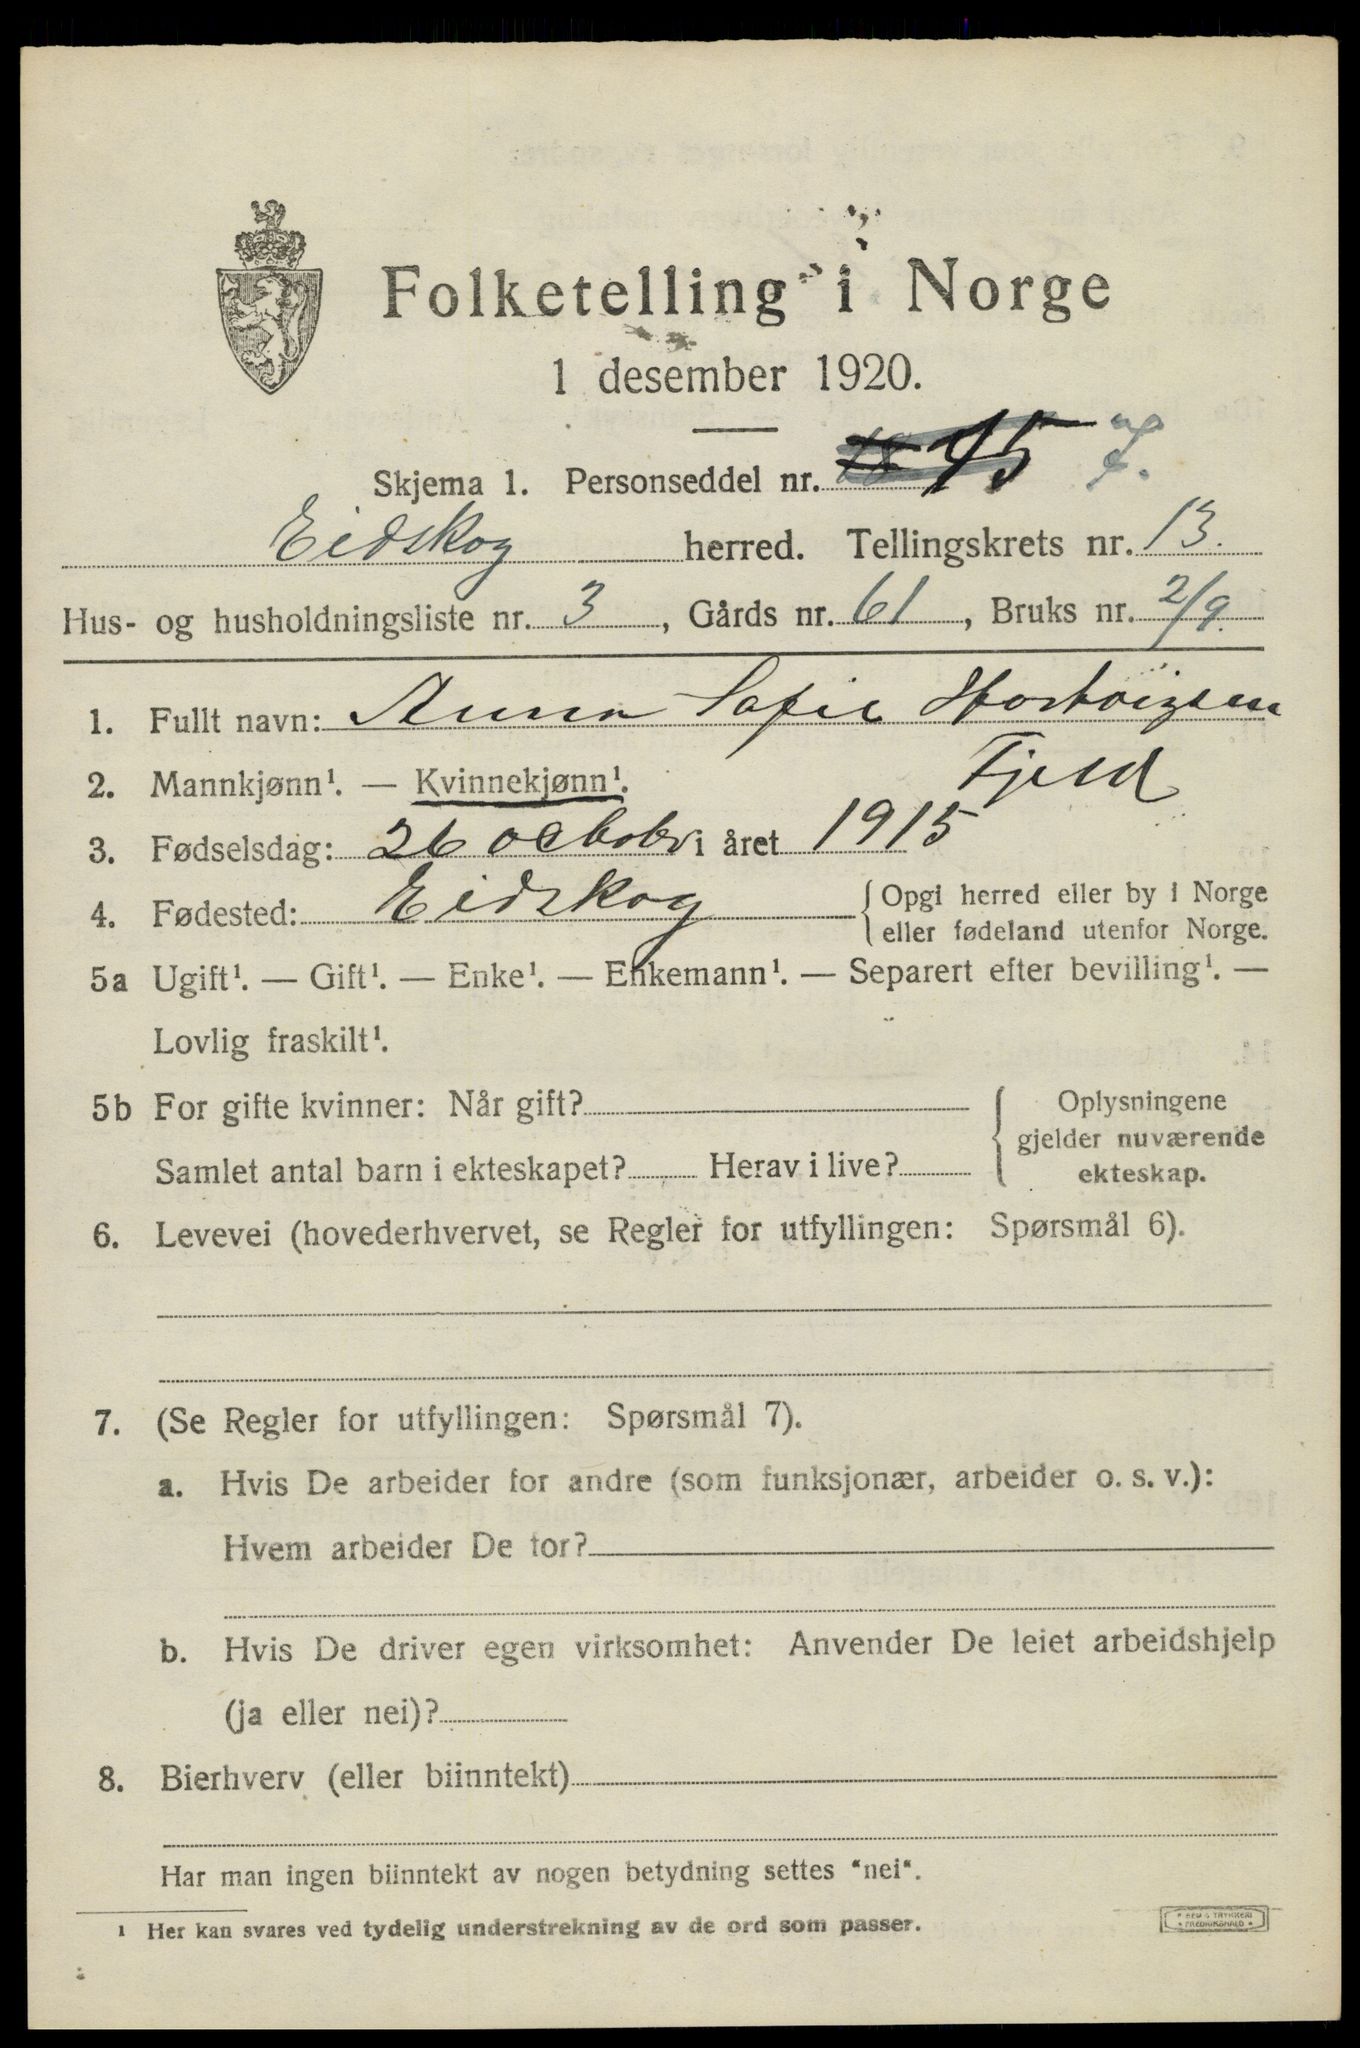 Folketelling i Norge
1 desember 1920.
Skjema 1. Personseddel nr. 15
Eidskog herred. Tellingskrets nr. 13.
Hus- og husholdningsliste nr. 3, Gårds nr. 61, Bruks nr. 2/9.
1. Fullt navn: Anna Sofie Hartvigsen
Fjeld
2. Mannkjønn¹. — Kvinnekjønn¹.
3. Fødselsdag: 26 october i året 1915
4. Fødested: Eidskog {Opgi herred eller by i Norge
eller fødeland utenfor Norge.
5a Ugift¹. — Gift¹. — Enke¹. — Enkemann¹. — Separert efter bevilling¹. —
Lovlig fraskilt¹.
5b For gifte kvinner: Når gift? { Oplysningene
gjelder nuværende
Samlet antal barn i ekteskapet? Herav i live? ekteskap.
6. Levevei (hovederhvervet, se Regler for utfyllingen: Spørsmål 6).
7. (Se Regler for utfyllingen: Spørsmål 7).
a. Hvis De arbeider for andre (som funksjonær, arbeider o. s. v.):
Hvem arbeider De for?
b. Hvis De driver egen virksomhet: Anvender De leiet arbeidshjelp
(ja eller nei)?
8. Bierhverv (eller biinntekt)
Har man ingen biinntekt av nogen betydning settes "nei".
¹ Her kan svares ved tydelig understrekning av de ord som passer.